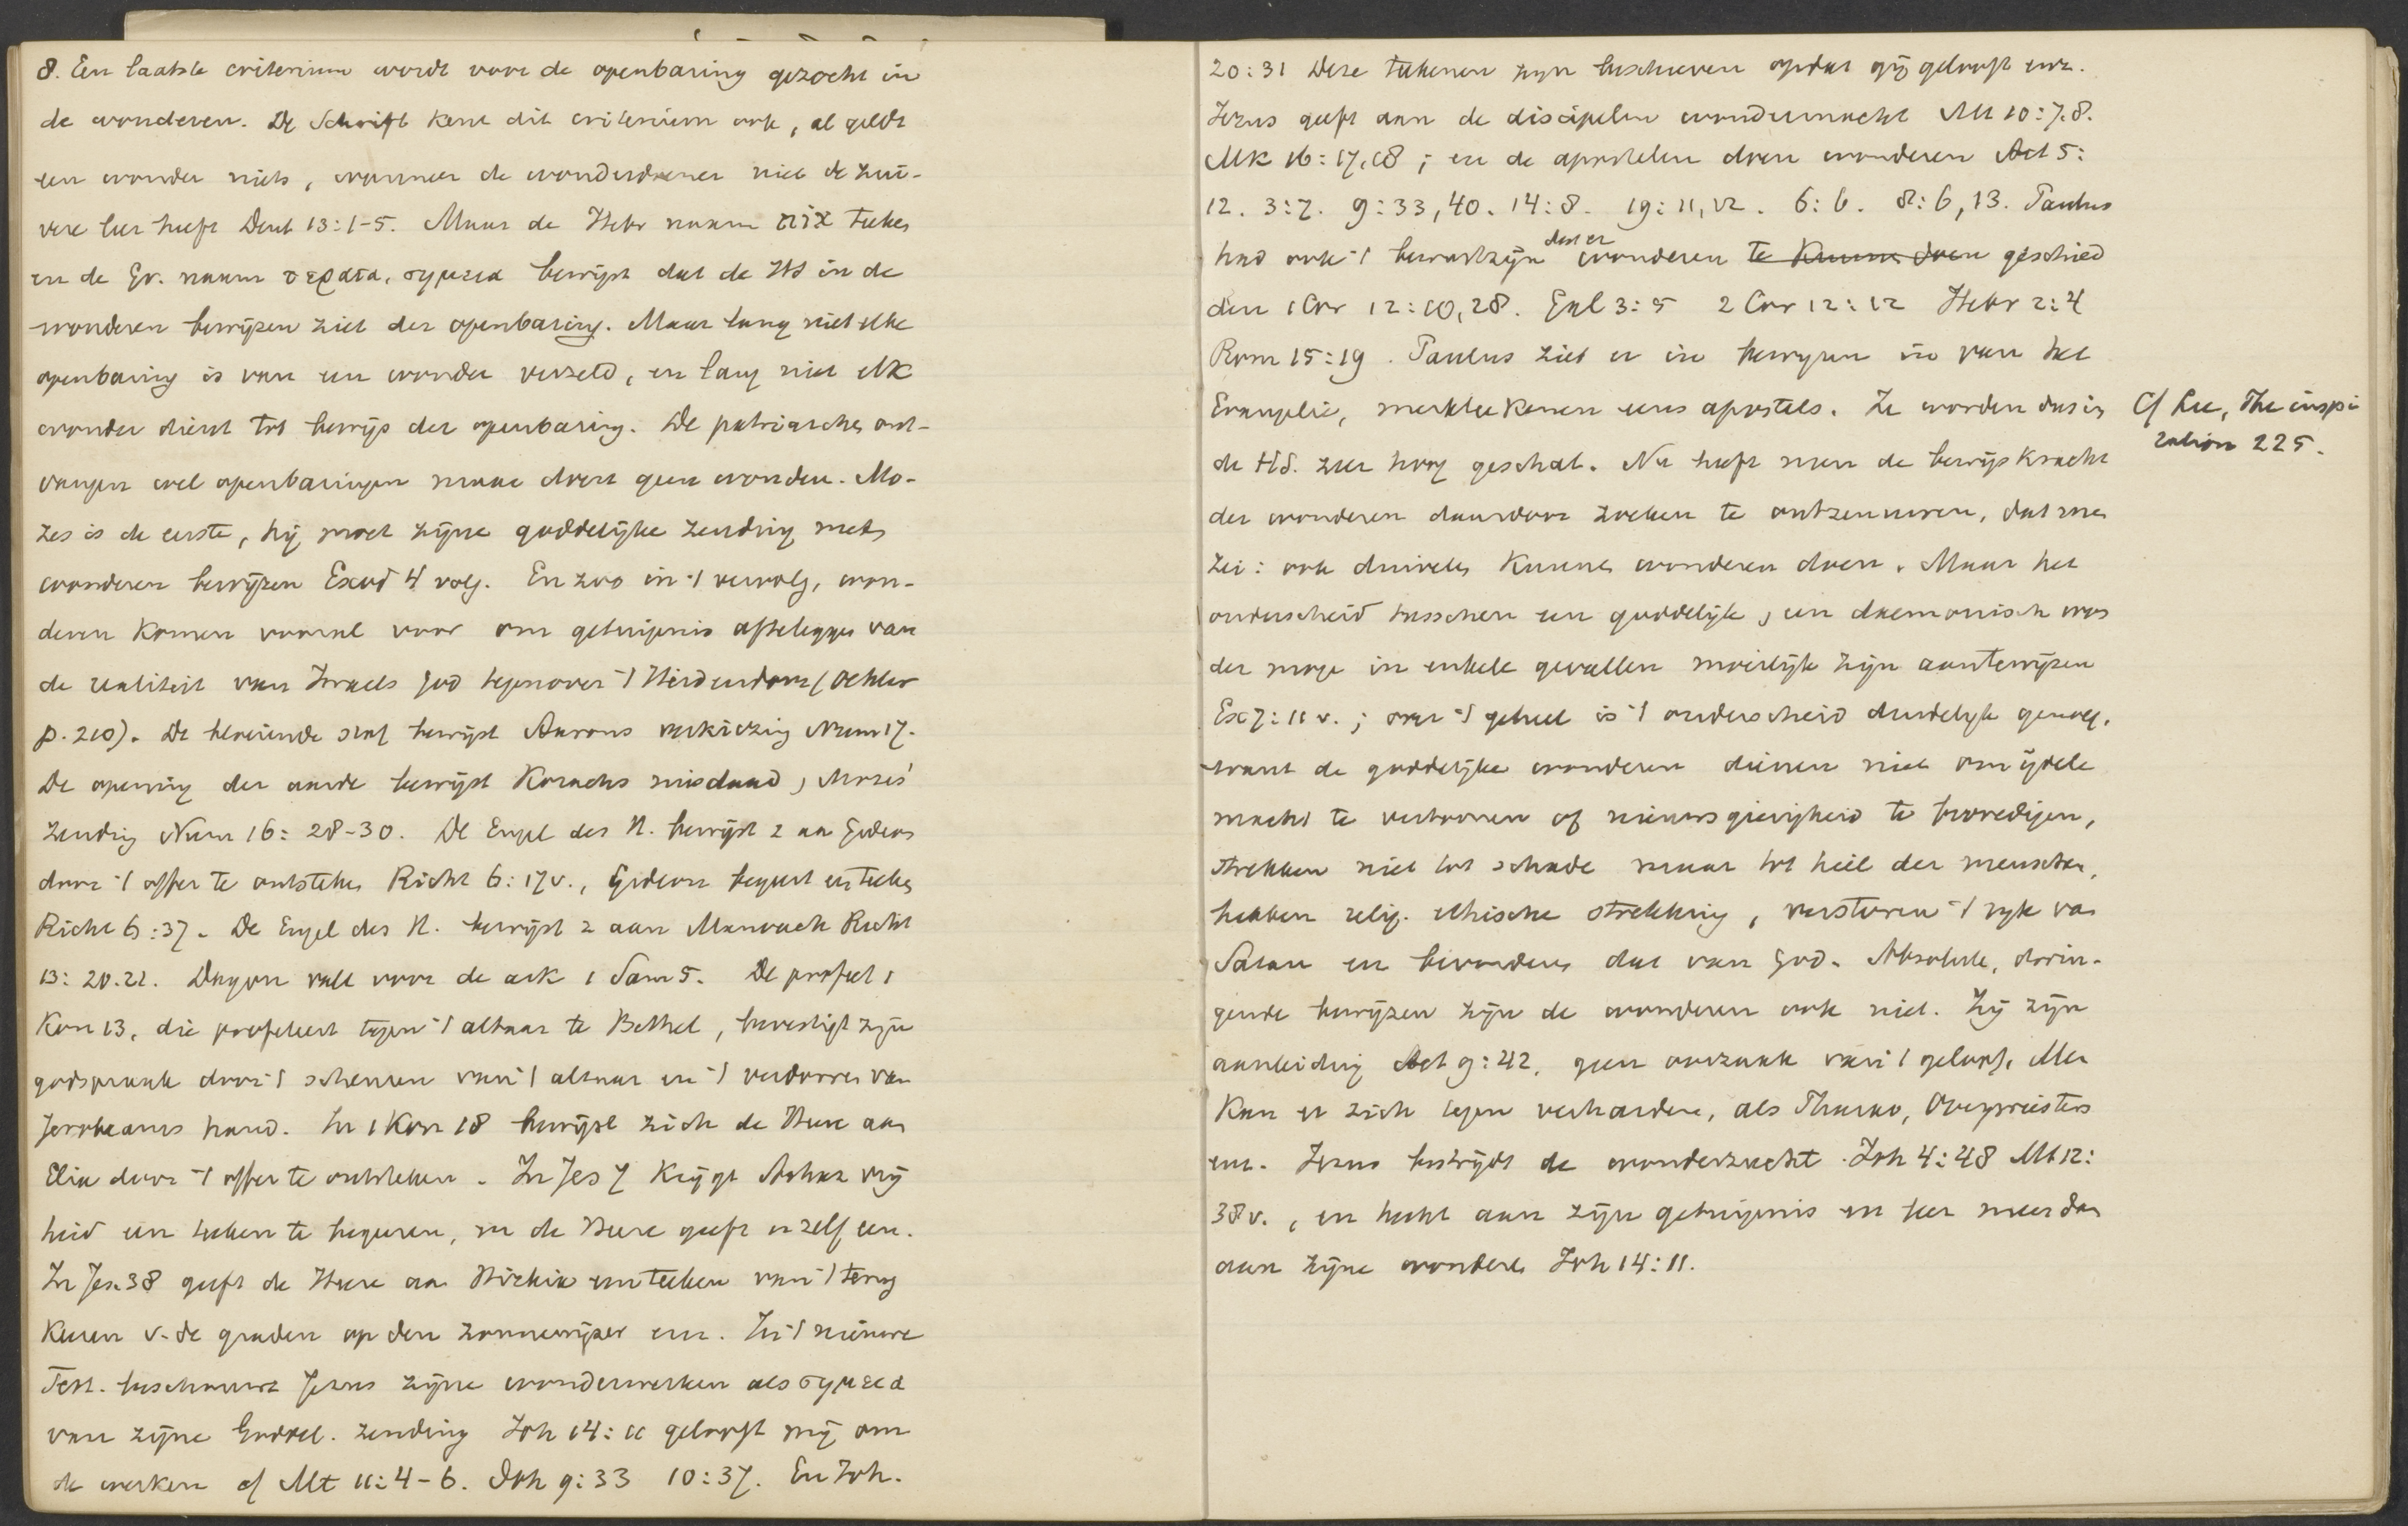 8. Een laatste criterium wordt voor de openbaring gezocht in
de wonderen. De Schrift kent dit criterium ook, al geldt
een wonder niets, wanneer de wonderdoener niet de zui-
vere leer heeft Deut 13:1-5. Maar de Hebr naam אות teeken
en de Gr. naam τερατα, σημεια bewijst dat de HS in de
wonderen bewijzen ziet der openbaring. Maar lang niet elke
openbaring is van een wonder verzeld, en lang niet elk
wonder dient tot bewijs der openbaring. De patriarchen ont-
vangen wel openbaringen maar doen geen wonderen. Mo-
zes is de eerste, hij moet zijne goddelijke zending met
wonderen bewijzen Exod 4 volg. En zoo in 't vervolg, won-
deren komen vooral voor om getuigenis afteleggen van
de realiteit van Israels God tegenover 't Heidendom (Oehler
p. 210). De bloeiende staf bewijst Aarons verkiezing Num 17.
De opening der aarde bewijst Korachs misdaad, Mozes'
zending Num 16: 28-30. De Engel des H. bewijst z aan Gideon
door 't offer te ontsteken Richt 6:17v., Gideon begeert een teeken
Richt 6:37. De Engel des H. bewijst z aan Manoach Richt
13: 20.21. Dagon valt voor de ark 1 Sam 5. De profeet 1
Kon 13, die profeteert tegen 't altaar te Bethel, bevestigt zijn
godspraak door 't scheuren van 't altaar en 't verdorren van
Jerobeams hand. In 1 Kon 18 bewijst zich de Heere aan
Elia door 't offer te ontsteken. In Jes 7 krijgt Achaz vrij
heid een teeken te begeeren, en de Heere geeft er zelf een.
In Jes. 38 geeft de Heere aan Hizkia een teeken van 't terug
keeren v. de graden op den zonnewijzer enz. In 't nieuwe
Test. beschouwt Jezus zijne wonderwerken als σημεια
van zijne Goddel. zending Joh 14:11 gelooft mij om
de werken cf Mt 11:4-6. Joh 9:33 10:37. En Joh.
20:31 Deze teekenen zijn beschreven opdat gij gelooft enz.
Jezus geeft aan de discipelen wondermacht Mt 10:7.8.
Mk 16:17,18; en de apostelen doen wonderen Act 5:
12. 3:7. 9:33,40. 14:8. 19:11,12. 6:6. 8:6,13. Paulus
had ook 't bewustzijn dat er wonderen te kunnen doen geschied
den 1 Cor 12:10,28. Gal 3:5 2 Cor 12:12 Hebr 2:4
Rom 15:19. Paulus ziet er in bewijzen in van het
Evangelie, merkteekenen eens apostels. Ze worden dus in
de HS. zeer hoog geschat. Nu heeft men de bewijskracht
der wonderen daardoor zoeken te ontzenuwen, dat men
zei: ook duivelen kunnen wonderen doen. Maar het
onderscheid tusschen een goddelijk, een daemonisch won
der moge in enkele gevallen moeilijk zijn aantewijzen
Ex 7:11 v.; over 't geheel is 't onderscheid duidelijk genoeg.
want de goddelijke wonderen dienen niet om ijdele
macht te vertoonen of nieuwsgierigheid te bevredigen,
strekken niet tot schade maar tot heil der menschen,
hebben relig. ethische strekking, verstoren 't rijk van
Satan en bevorderen dat van God. Absolute, dwin-
gende bewijzen zijn de wonderen ook niet. Zij zijn
aanleiding Act 9:42, geen oorzaak van 't geloof. Men
kan er zich tegen verharden, als Pharao, Overpriesters
enz. Jezus bestrijdt de wonderzucht Joh 4:48 Mt 12:
38v., en hecht aan zijn getuigenis en leer meer dan
aan zijne wonderen Joh 14:11.
Cf Lee, The inspi
ration 225.